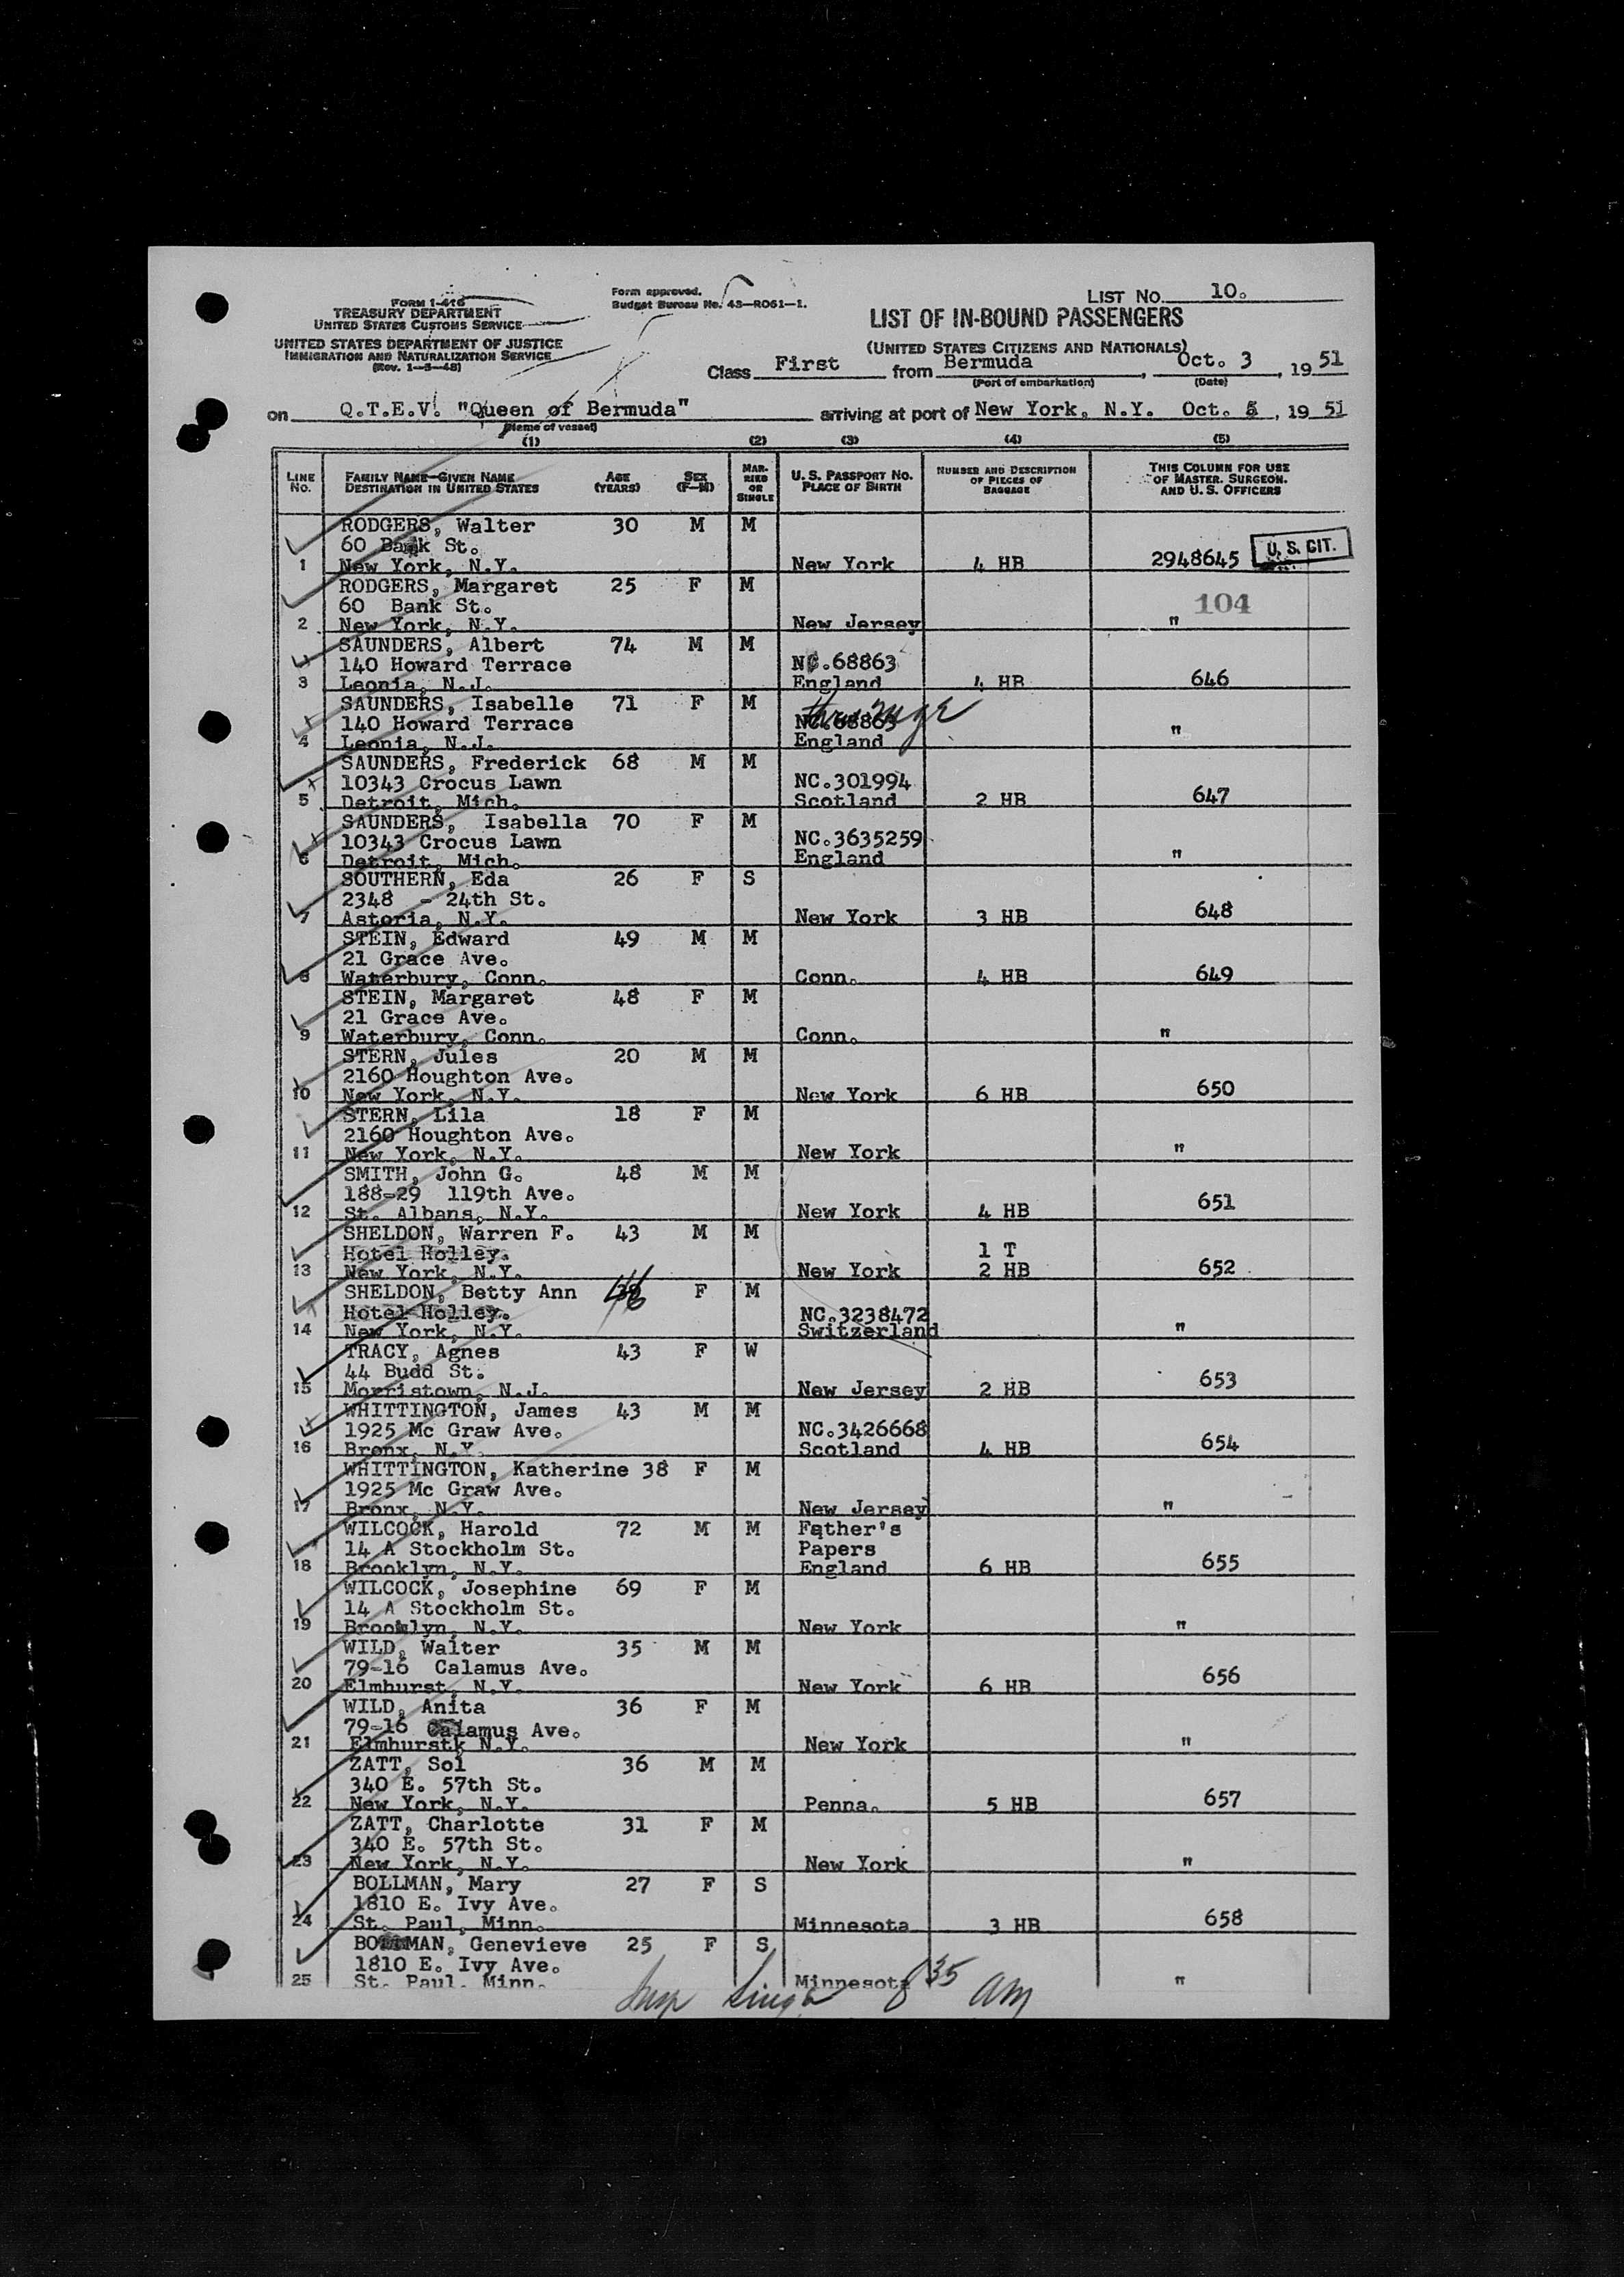 FORM I-416
TREASURY DEPARTMENT
UNITED STATES CUSTOMS SERVICE
UNITED STATES DEPARTMENT OF JUSTICE
IMMIGRATION AND NATURALIZATION SERVICE
(Rev. 1-5-48)
Form approved.
Budget Bureau No. 43-R061-1.
LIST No. 10.
LIST OF IN-BOUND PASSENGERS
(UNITED STATES CITIZENS AND NATIONALS)
Class First from Bermuda, Oct. 3, 19 51
(Port of embarkation) (Date)
on Q.T.E.V. "Queen of Bermuda" arriving at port of New York, N.Y. Oct. 5, 19 51
(Name of vessel)
(1) (2) (3) (4) (5)
LINE No. FAMILY NAME-GIVEN NAME DESTINATION IN UNITED STATES AGE (YEARS) SEX (F-M) MARRIED OR SINGLE U. S. PASSPORT NO. PLACE OF BIRTH NUMBER AND DESCRIPTION OF PIECES OF BAGGAGE THIS COLUMN FOR USE OF MASTER, SURGEON, AND U. S. OFFICERS
RODGERS, Walter 30 M M
60 Bank St.
1 New York, N.Y. New York 4 HB 2948645 U. S. CIT.
RODGERS, Margaret 25 F M
60 Bank St. 104
2 New York, N.Y. New Jersey "
SAUNDERS, Albert 74 M M
140 Howard Terrace NC.68863
3 Leonia, N.J. England 4 HB 646
SAUNDERS, Isabelle 71 F M
140 Howard Terrace NC.68863
4 Leonia, N.J. England "
SAUNDERS, Frederick 68 M M
10343 Crocus Lawn NC.301994
5 Detroit, Mich. Scotland 2 HB 647
SAUNDERS, Isabella 70 F M
10343 Crocus Lawn NC.3635259
6 Detroit, Mich. England "
SOUTHERN, Eda 26 F S
2348 - 24th St.
7 Astoria, N.Y. New York 3 HB 648
STEIN, Edward 49 M M
21 Grace Ave.
8 Waterbury, Conn. Conn. 4 HB 649
STEIN, Margaret 48 F M
21 Grace Ave.
9 Waterbury, Conn. Conn. "
STERN, Jules 20 M M
2160 Houghton Ave.
10 New York, N.Y. New York 6 HB 650
STERN, Lila 18 F M
2160 Houghton Ave.
11 New York, N.Y. New York "
SMITH, John G. 48 M M
188-29 119th Ave.
12 St. Albans, N.Y. New York 4 HB 651
SHELDON, Warren F. 43 M M
Hotel Holley. 1 T
13 New York, N.Y. New York 2 HB 652
SHELDON, Betty Ann 46 F M
Hotel Holley. NC.3238472
14 New York, N.Y. Switzerland "
TRACY, Agnes 43 F W
44 Budd St.
15 Morristown, N.J. New Jersey 2 HB 653
WHITTINGTON, James 43 M M
1925 Mc Graw Ave. NC.3426668
16 Bronx, N.Y. Scotland 4 HB 654
WHITTINGTON, Katherine 38 F M
1925 Mc Graw Ave.
17 Bronx, N.Y. New Jersey "
WILCOCK, Harold 72 M M Father's
14 A Stockholm St. Papers
18 Brooklyn, N.Y. England 6 HB 655
WILCOCK, Josephine 69 F M
14 A Stockholm St.
19 Brooklyn, N.Y. New York "
WILD, Walter 35 M M
79-16 Calamus Ave.
20 Elmhurst, N.Y. New York 6 HB 656
WILD, Anita 36 F M
79-16 Calamus Ave.
21 Elmhurstk N.Y. New York "
ZATT, Sol 36 M M
340 E. 57th St.
22 New York, N.Y. Penna. 5 HB 657
ZATT, Charlotte 31 F M
340 E. 57th St.
23 New York, N.Y. New York "
BOLLMAN, Mary 27 F S
1810 E. Ivy Ave.
24 St. Paul, Minn. Minnesota 3 HB 658
BOLLMAN, Genevieve 25 F S
1810 E. Ivy Ave.
25 St. Paul, Minn. Minnesota "
835 am